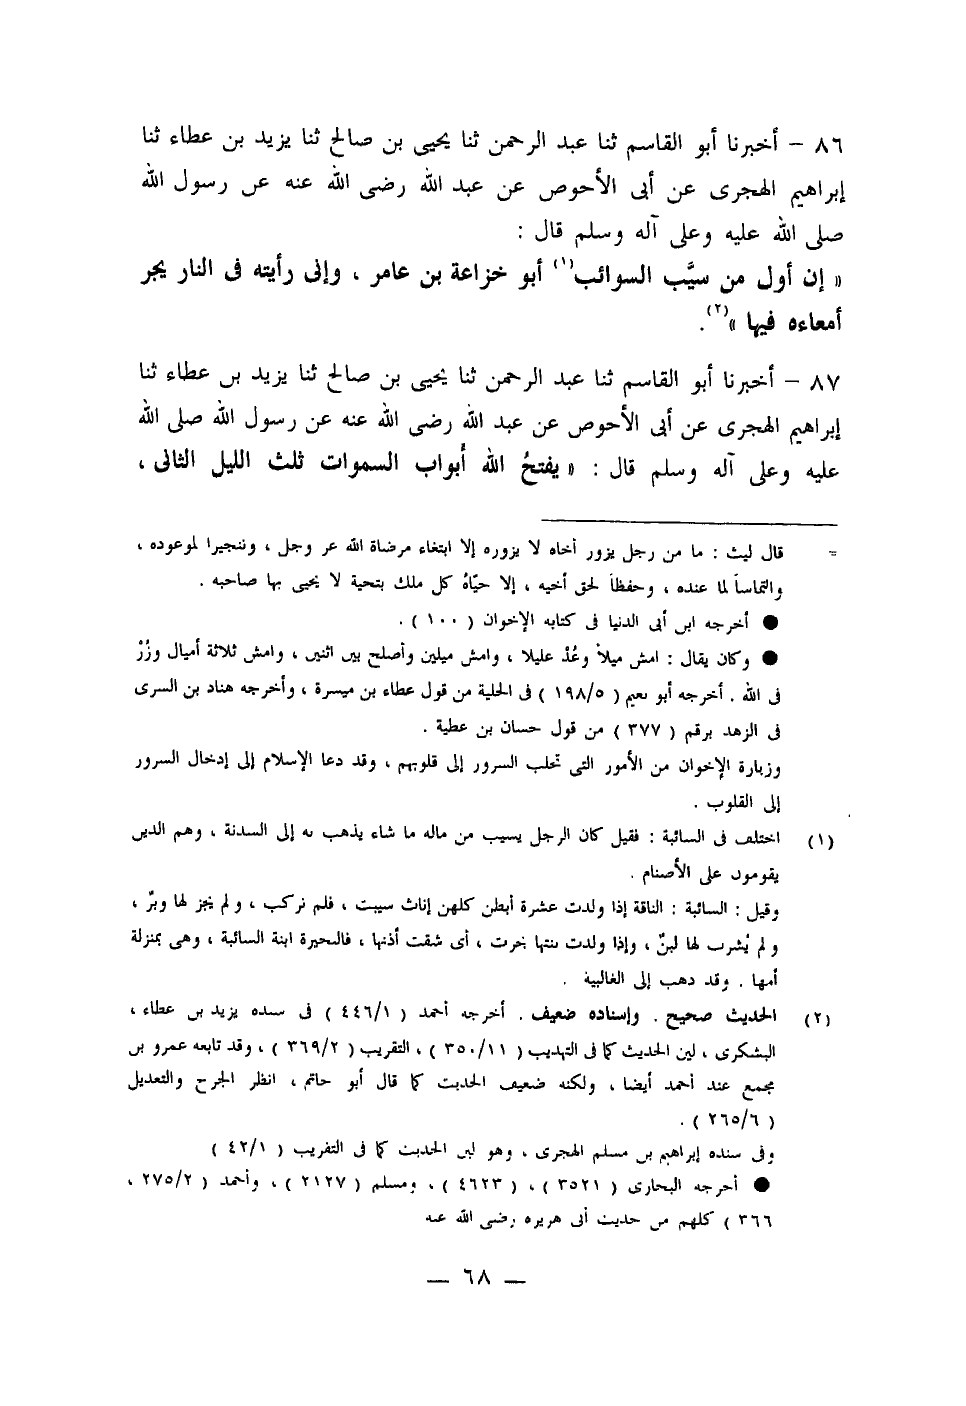 ٨٦ – أخبرنا أبو القاسم ثنا عبد الرحمن ثنا يحيى بن صالح ثنا يزيد بن عطاء ثنا
إبراهيم الهجرى عن أبى الأحوص عن عبد الله رضى الله عنه عن رسول الله
صلى الله عليه وعلى آله وسلم قال :
« إن أول من سيَّب السوائب(١) أبو خزاعة بن عامر ، وإنى رأيته فى النار يجر
أمعاءه فيها »(٢).
٨٧ – أخبرنا أبو القاسم ثنا عبد الرحمن ثنا يحيى بن صالح ثنا يزيد بن عطاء ثنا
إبراهيم الهجرى عن أبى الأحوص عن عبد الله رضى الله عنه عن رسول الله صلى الله
عليه وعلى آله وسلم قال : « يفتحُ الله أبواب السموات ثلث الليل الثانى ،
= قال ليث : ما من رجل يزور أخاه لا يزوره إلا ابتغاء مرضاة الله عز وجل ، وتنجيزا لموعوده ،
والتماساً لما عنده ، وحفظاً لحق أخيه ، إلا حيّاهُ كل ملك بتحية لا يحيى بها صاحبه .
● أخرجه ابن أبى الدنيا فى كتابه الإخوان ( ١٠٠ ) .
● وكان يقال : امش ميلاً وعُدْ عليلا ، وامش ميلين وأصلح بين اثنين ، وامش ثلاثة أميال وزُرْ
فى الله . أخرجه أبو نعيم ( ١٩٨/٥ ) فى الحلية من قول عطاء بن ميسرة ، وأخرجه هناد بن السرى
فى الزهد برقم ( ٣٧٧ ) من قول حسان بن عطية .
وزيارة الإخوان من الأمور التى تجلب السرور إلى قلوبهم ، وقد دعا الإسلام إلى إدخال السرور
إلى القلوب .
(١) اختلف فى السائبة : فقيل كان الرجل يسيب من ماله ما شاء يذهب به إلى السدنة ، وهم الذين
يقومون على الأصنام .
وقيل : السائبة : الناقة إذا ولدت عشرة أبطن كلهن إناث سيبت ، فلم تركب ، ولم يجز لها وبرٌ ،
ولم يُشرب لها لبنٌ ، وإذا ولدت بنتها بحرت ، أى شقت أذنها ، فالبحيرة ابنة السائبة ، وهى بمنزلة
أمها . وقد دهب إلى الغالبية .
(٢) الحديث صحيح . وإسناده ضعيف . أخرجه أحمد ( ٤٤٦/١ ) فى سنده يزيد بن عطاء ،
اليشكرى ، لين الحديث كما فى التهذيب ( ٣٥٠/١١ ) ، التقريب ( ٣٦٩/٢ ) ، وقد تابعه عمرو بن
مجمع عند أحمد أيضا ، ولكنه ضعيف الحديث كما قال أبو حاتم ، انظر الجرح والتعديل
( ٢٦٥/٦ ) .
وفى سنده إبراهيم بن مسلم الهجرى ، وهو لين الحديث كما فى التقريب ( ٤٢/١ )
● أخرجه البخارى ( ٣٥٢١ ) ، ( ٤٦٢٣ ) ، ومسلم ( ٢١٢٧ ) ، وأحمد ( ٢٧٥/٢ ،
٣٦٦ ) كلهم من حديث أبى هريره رضى الله عنه
— ٦٨ —